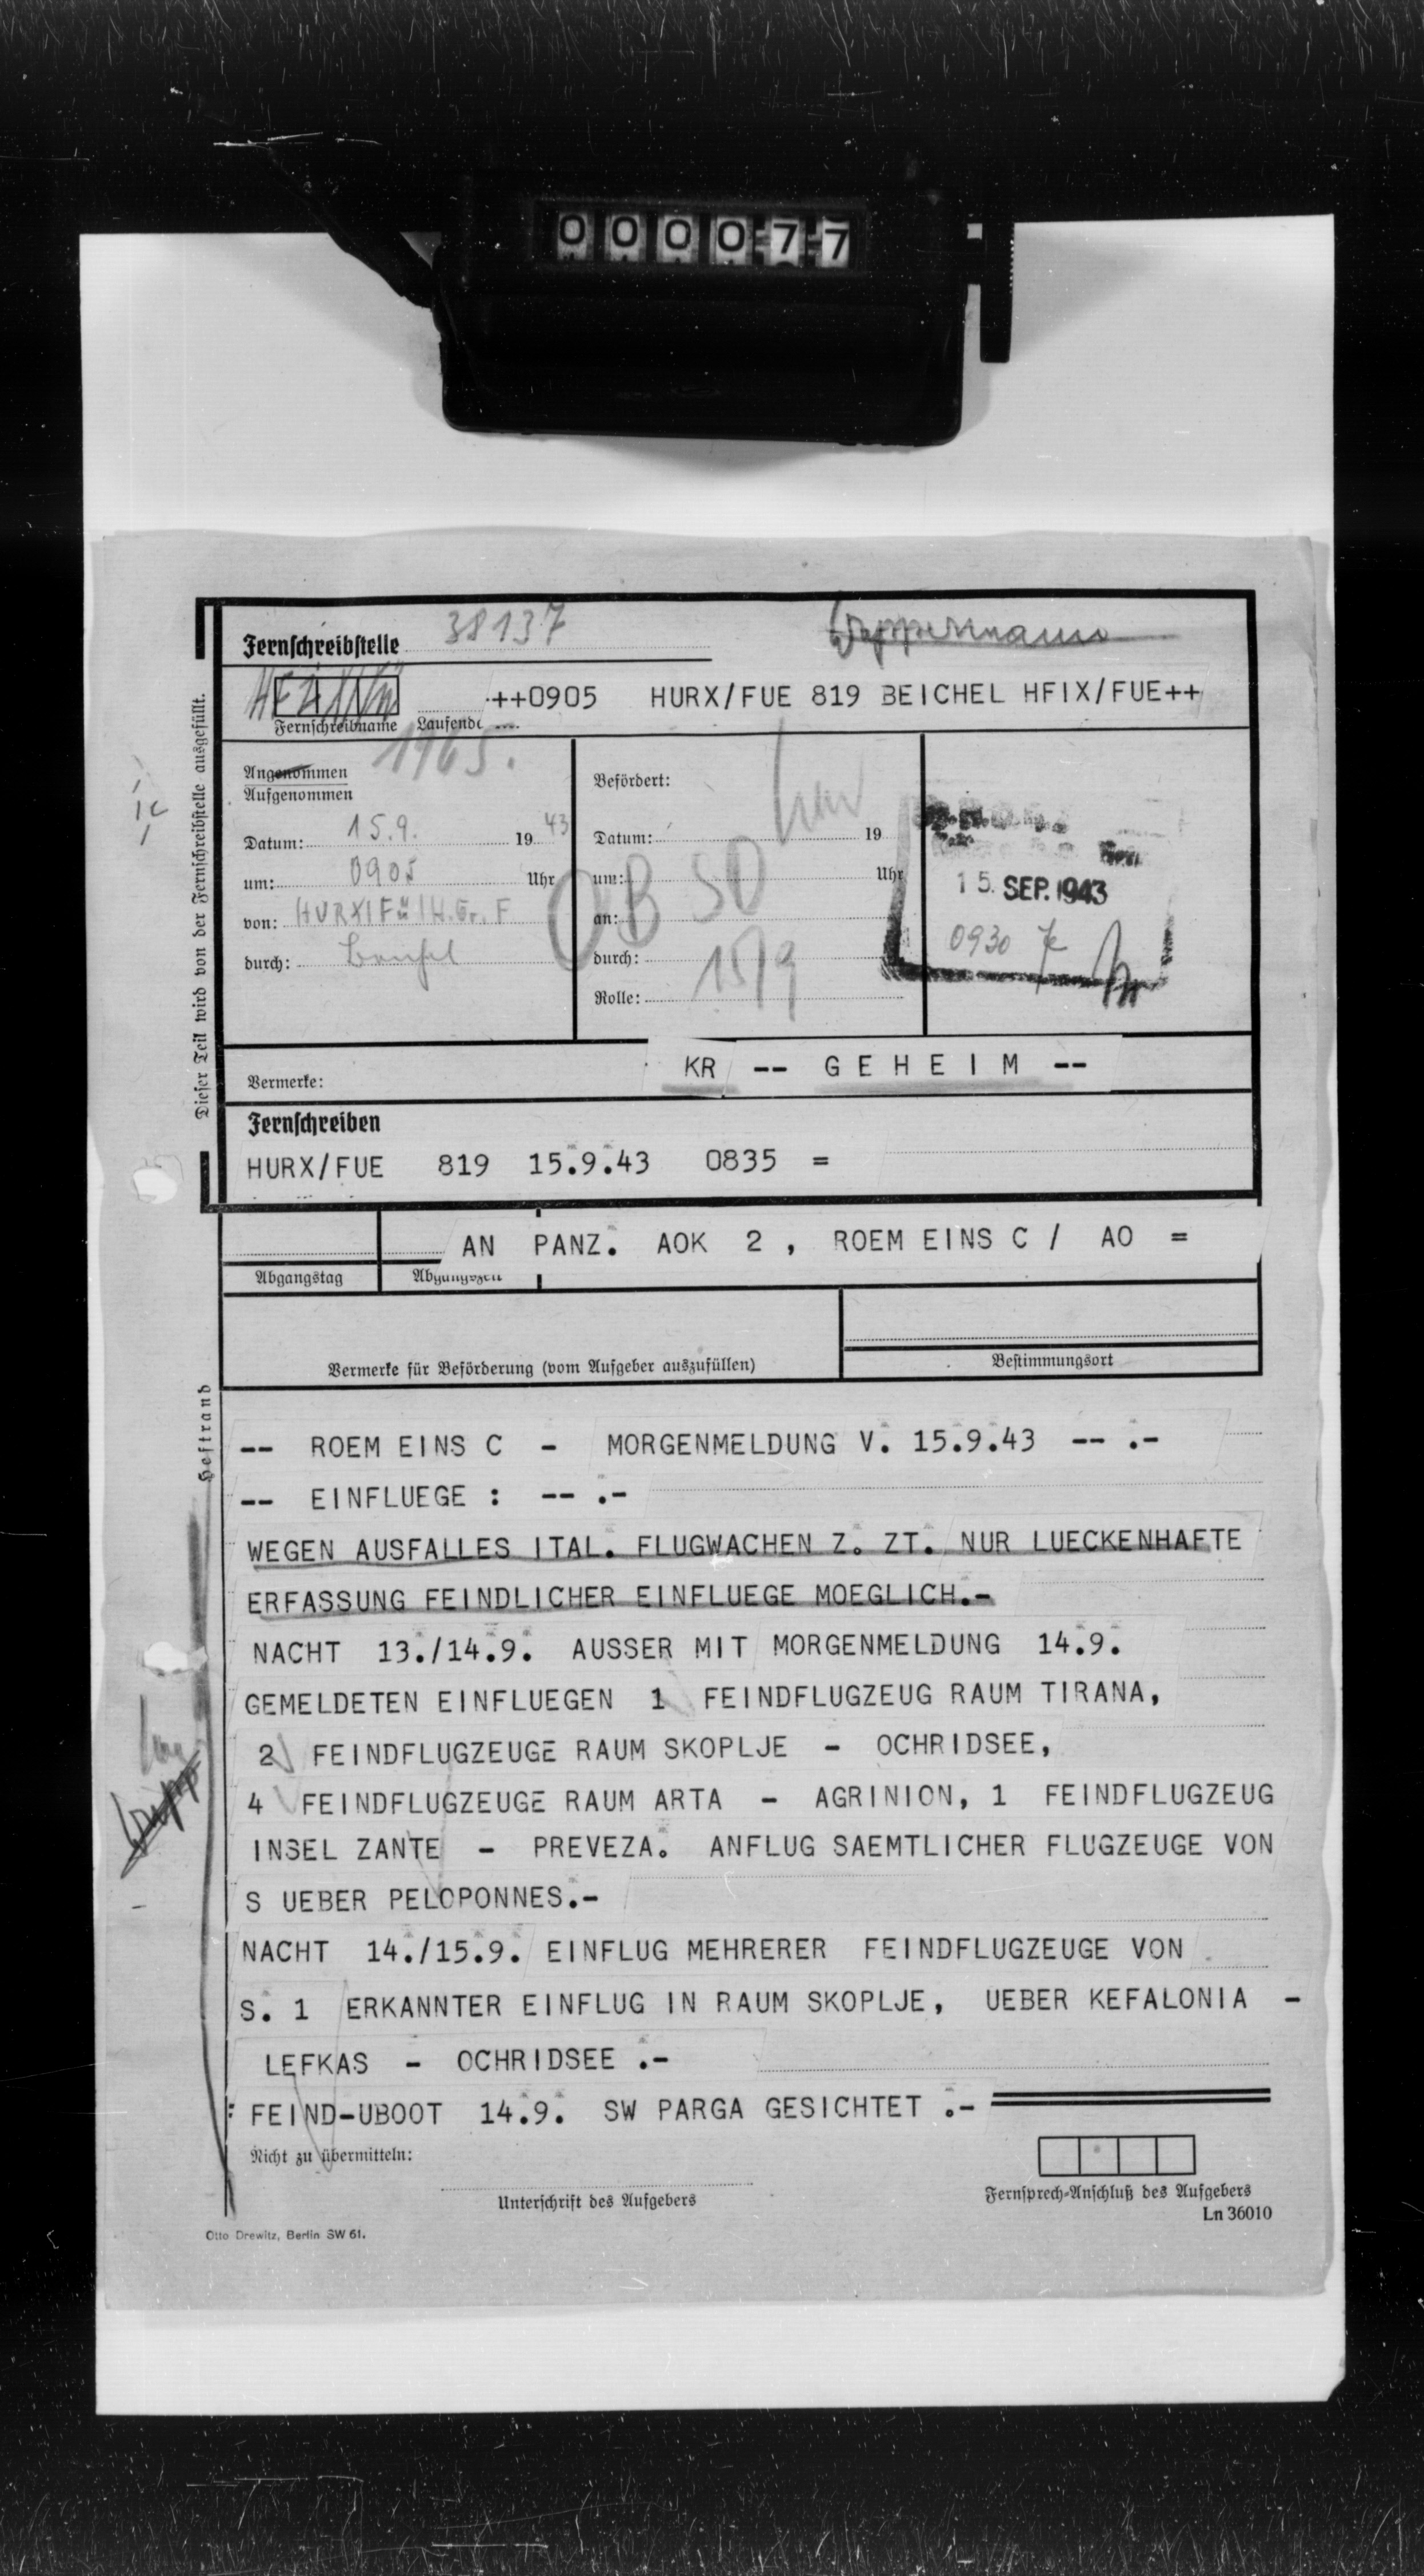 000077
Fernschreibstelle 38137
++0905 HURX/FUE 819 BEICHEL HFIX/FUE++
Fernschreibname Laufende
1965.
Angenommen
Aufgenommen
Datum: 15.9. 1943
um: 0905 Uhr
von: HURX/Fü/H.Gr. F
durch:
Befördert:
Datum: 19
um: Uhr
an:
durch:
Rolle:
OB SO
15/9
15. SEP. 1943
0930
Dieser Teil wird von der Fernschreibstelle ausgefüllt.
Ic
Vermerke: KR -- G E H E I M --
Fernschreiben
HURX/FUE 819 15.9.43 0835 =
AN PANZ. AOK 2 , ROEM EINS C / AO =
Abgangstag Abgangszeit
Vermerke für Beförderung (vom Aufgeber auszufüllen) Bestimmungsort
Heftrand
-- ROEM EINS C - MORGENMELDUNG V. 15.9.43 -- .-
-- EINFLUEGE : -- .-
WEGEN AUSFALLES ITAL. FLUGWACHEN Z. ZT. NUR LUECKENHAFTE
ERFASSUNG FEINDLICHER EINFLUEGE MOEGLICH.-
NACHT 13./14.9. AUSSER MIT MORGENMELDUNG 14.9.
GEMELDETEN EINFLUEGEN 1 FEINDFLUGZEUG RAUM TIRANA,
2 FEINDFLUGZEUGE RAUM SKOPLJE - OCHRIDSEE,
4 FEINDFLUGZEUGE RAUM ARTA - AGRINION, 1 FEINDFLUGZEUG
INSEL ZANTE - PREVEZA. ANFLUG SAEMTLICHER FLUGZEUGE VON
S UEBER PELOPONNES.-
NACHT 14./15.9. EINFLUG MEHRERER FEINDFLUGZEUGE VON
S. 1 ERKANNTER EINFLUG IN RAUM SKOPLJE, UEBER KEFALONIA -
LEFKAS - OCHRIDSEE .-
: FEIND-UBOOT 14.9. SW PARGA GESICHTET .-
Nicht zu übermitteln:
Unterschrift des Aufgebers
Fernsprech-Anschluß des Aufgebers
Ln 36010
Otto Drewitz, Berlin SW 61.